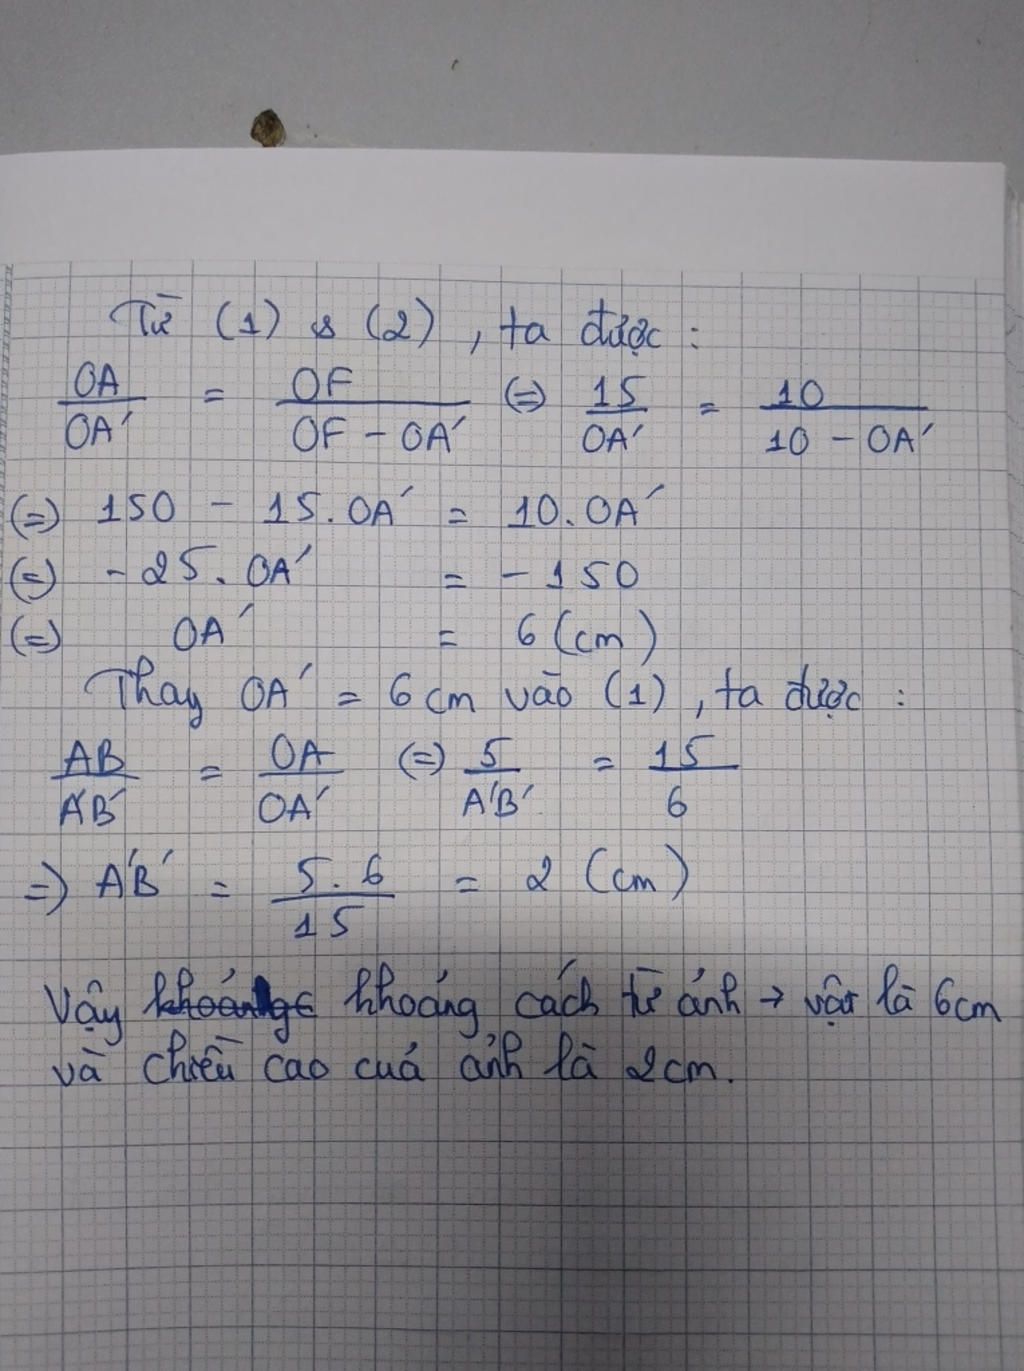 Từ (1) & (2), ta được:
OA/OA' = OF/(OF - OA') (=) 15/OA' = 10/(10 - OA')
(=) 150 - 15.OA' = 10.OA'
(=) -25.OA' = -150
(=) OA' = 6 (cm)
Thay OA' = 6cm vào (1), ta được:
AB/A'B' = OA/OA' (=) 5/A'B' = 15/6
=) A'B' = 5.6/15 = 2 (cm)
Vậy khoảng cách từ ảnh → vật là 6cm
và chiều cao của ảnh là 2cm.